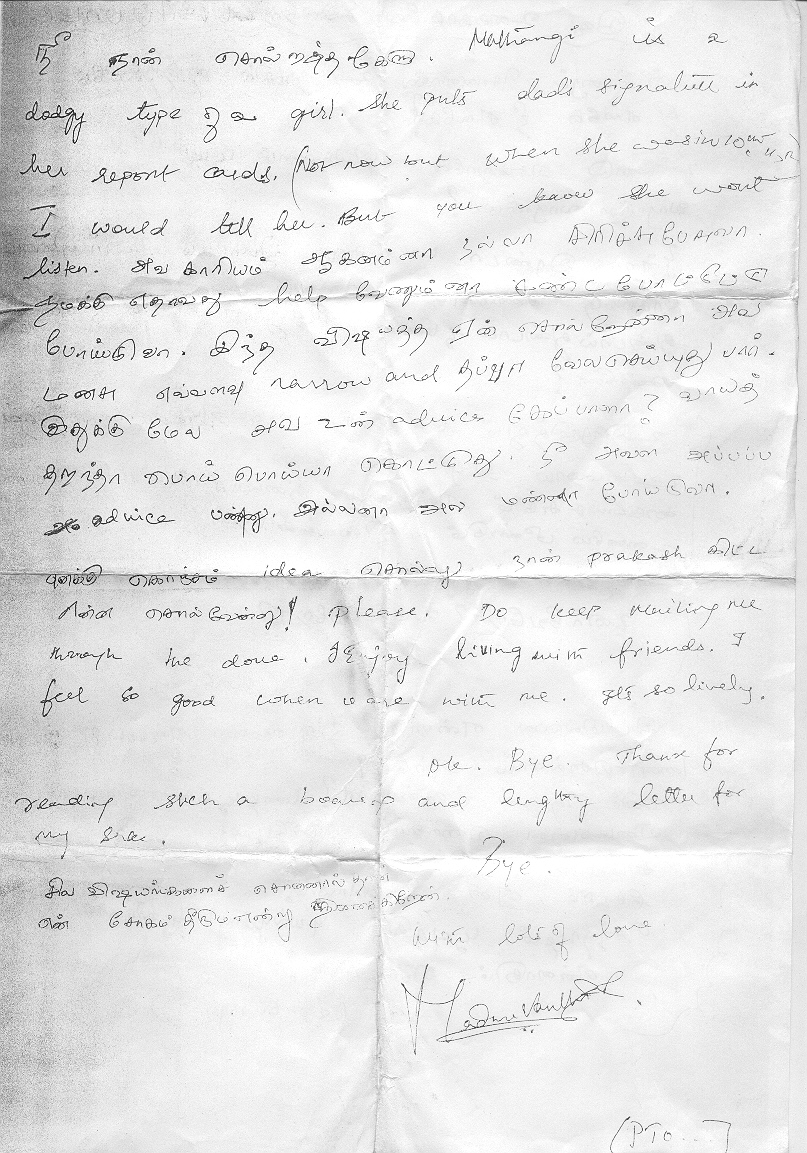 நீ நான் சொல்றத்த கேளு. Mathangi is a
dodgy type of a girl. She puts dad's signature in
her report cards. (Not now but when she was in lower
I would tell her. But you know she wont
listen. அவ காரியம் ஆகனம்னா நல்லா சிரிச்சு பேசுவா.
நமக்கு எதாவது help வேணும்னா சண்ட போட்டுட்டு
போய்டுவா. இந்த விஷயத்த ஏன் சொல்றேன்னா அவ
மனசு எவ்வளவு narrow and தப்பா வேலசெய்யுது பார்.
இதுக்கு மேல அவ உன் advice கேப்பாளா? வாயத்
தறந்தா பொய் பொய்யா கொட்டுது. நீ அவள அப்பப்ப
advice பண்ணு. அல்லனா அவ மண்ணா போய்டுவா.
எனக்கு கொஞ்சம் idea சொல்லு நான் prakash கிட்ட
என்ன சொல்வேன்னு! please. Do keep mailing me
through the dove. I Enjoy living with friends. I
feel so good when u are with me. Its so lively.
Ok. Bye. Thanx for
reading such a boaring and lengthy letter for
my sake.
Bye.
சில விஷயங்களைச் சொன்னால் தான்
என் சோகம் தீரும் என்று நினைக்கிறேன்.
With lots of love
(PTO...)